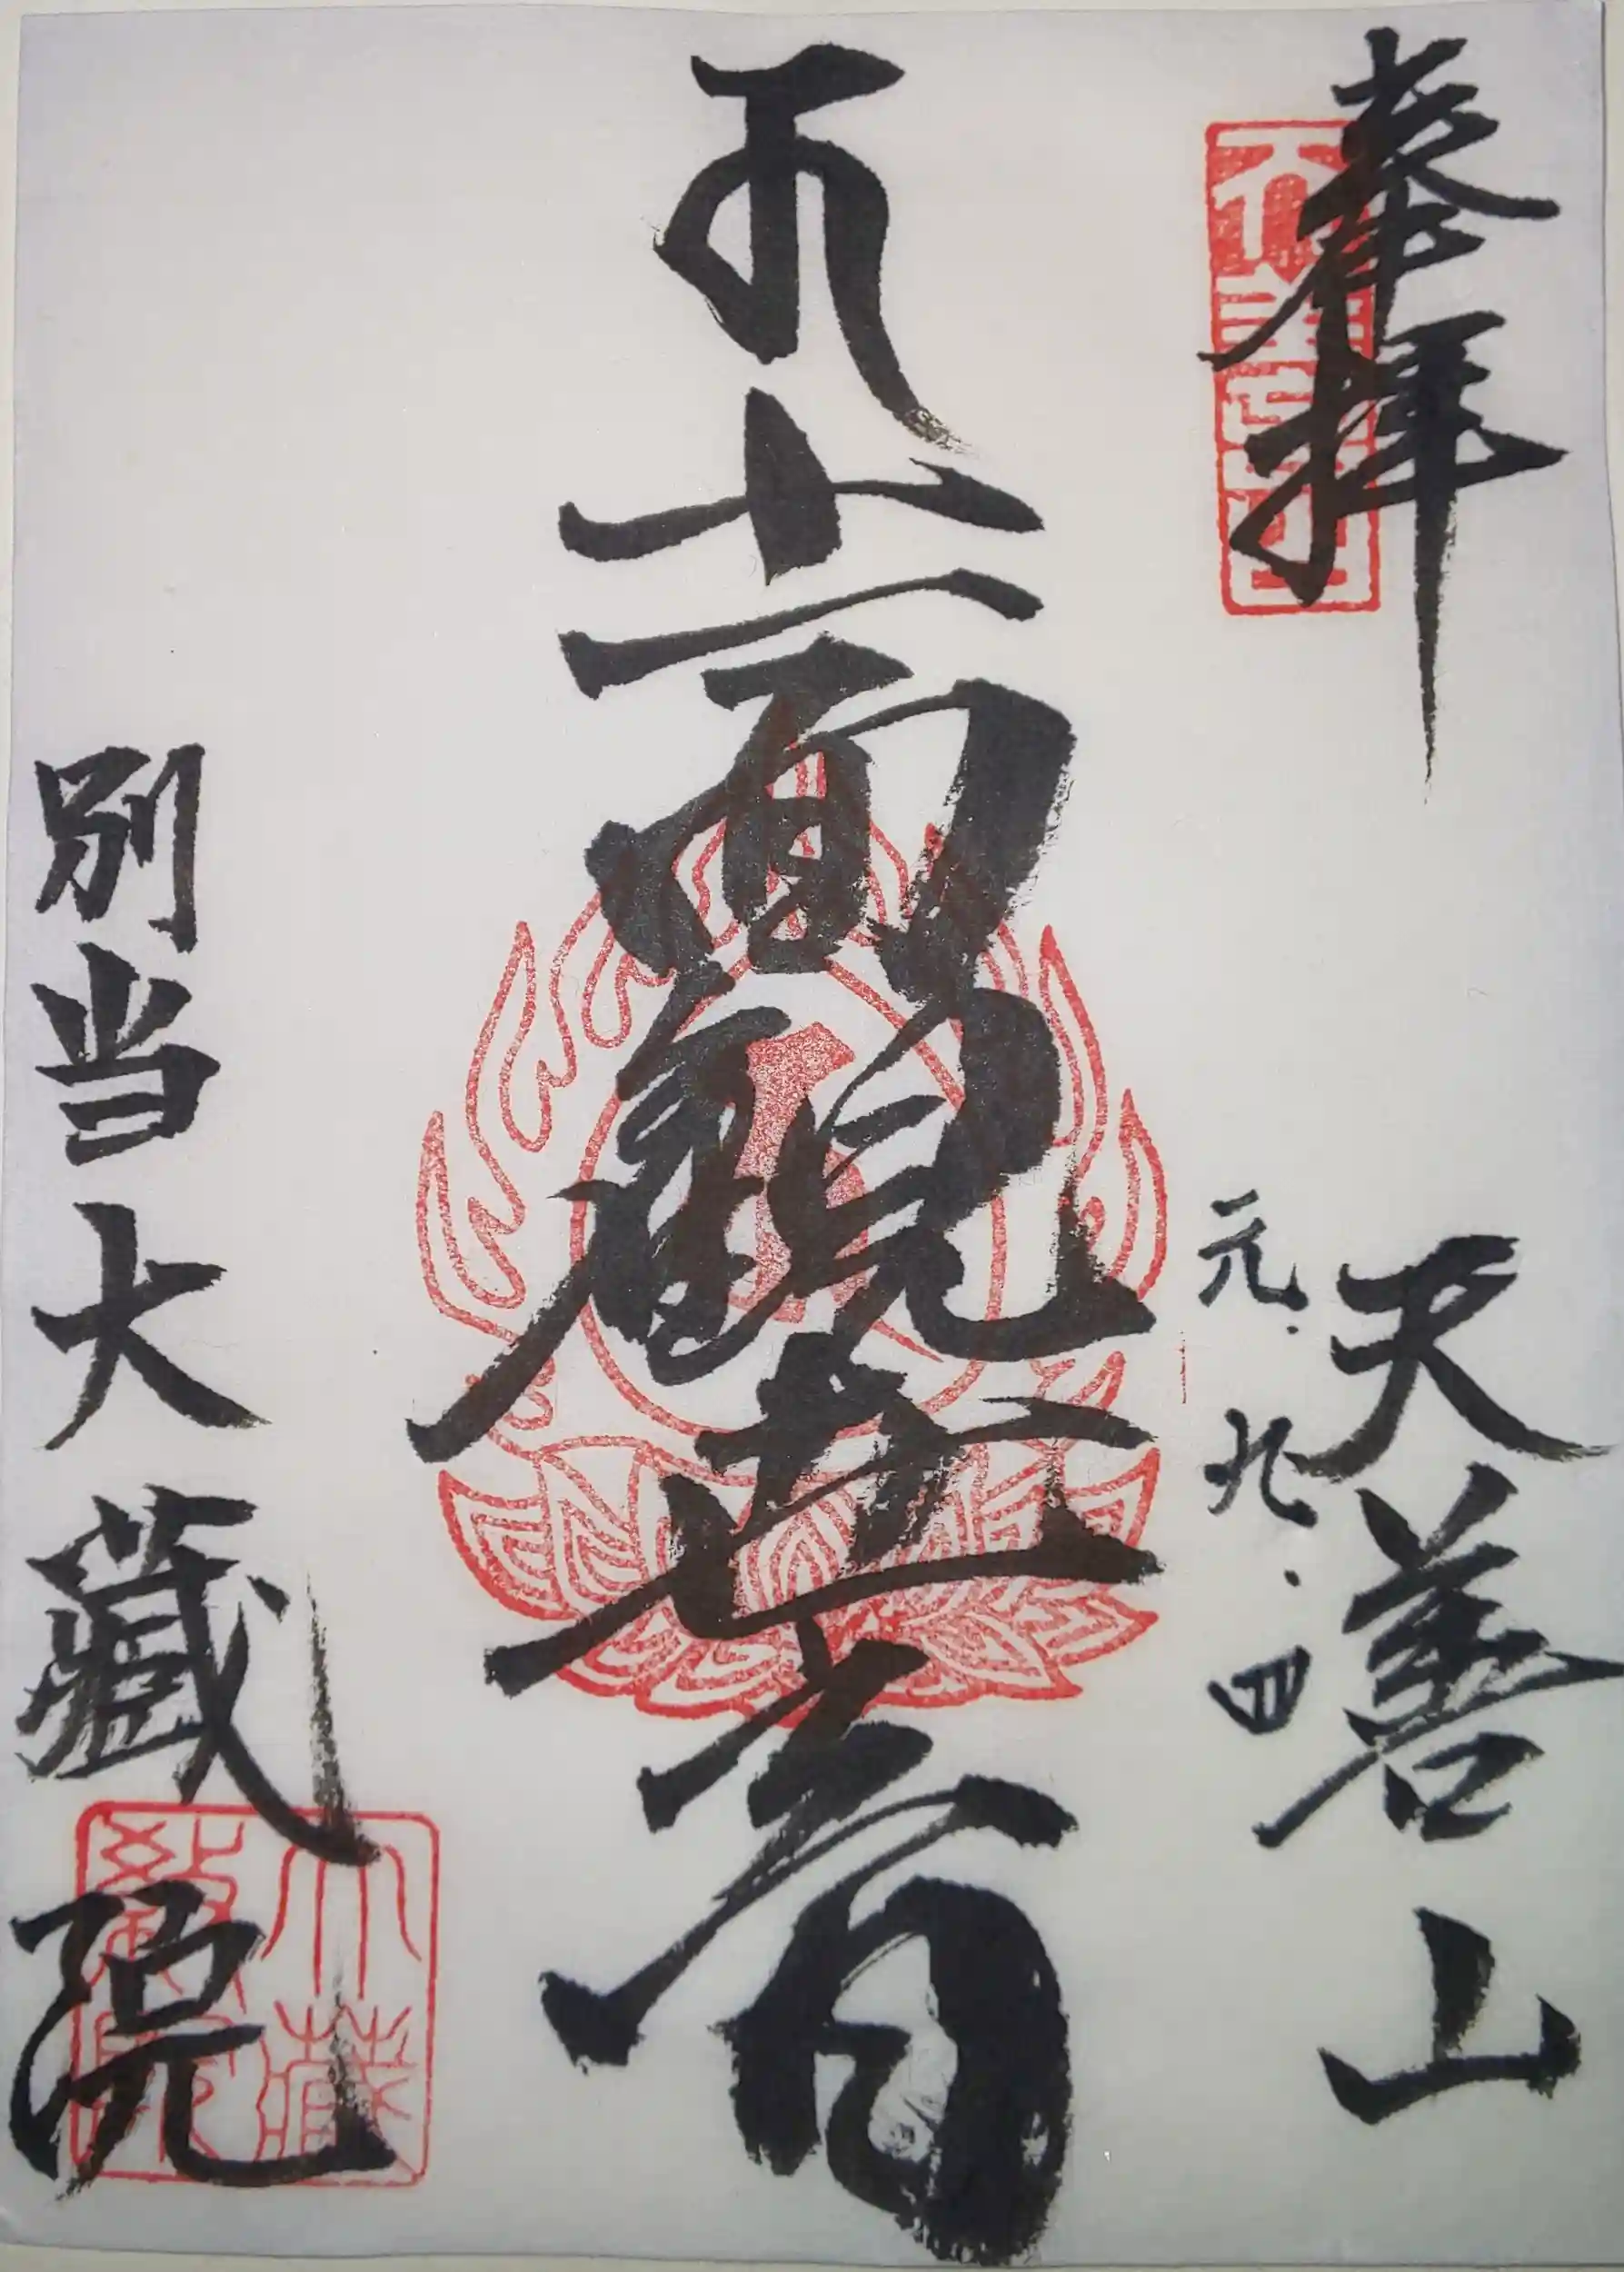 奉拝
天善山
元.九.四
十一面観世音
別当大藏院
大藏